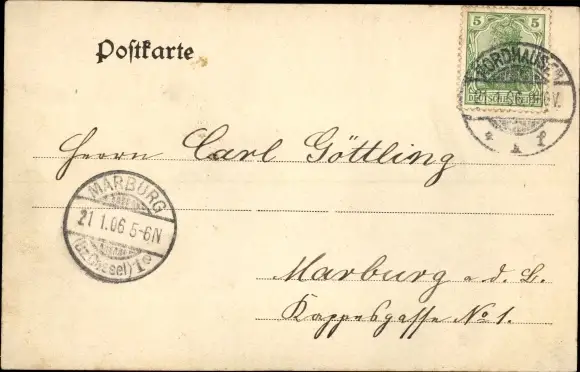 Postkarte
5 5
NORDHAUSEN
Herrn Carl Göttling
MARBURG
21 1.06 5-6N
(Bz. Cassel) 1
Marburg a. d. L.
Kappesgasse No 1.